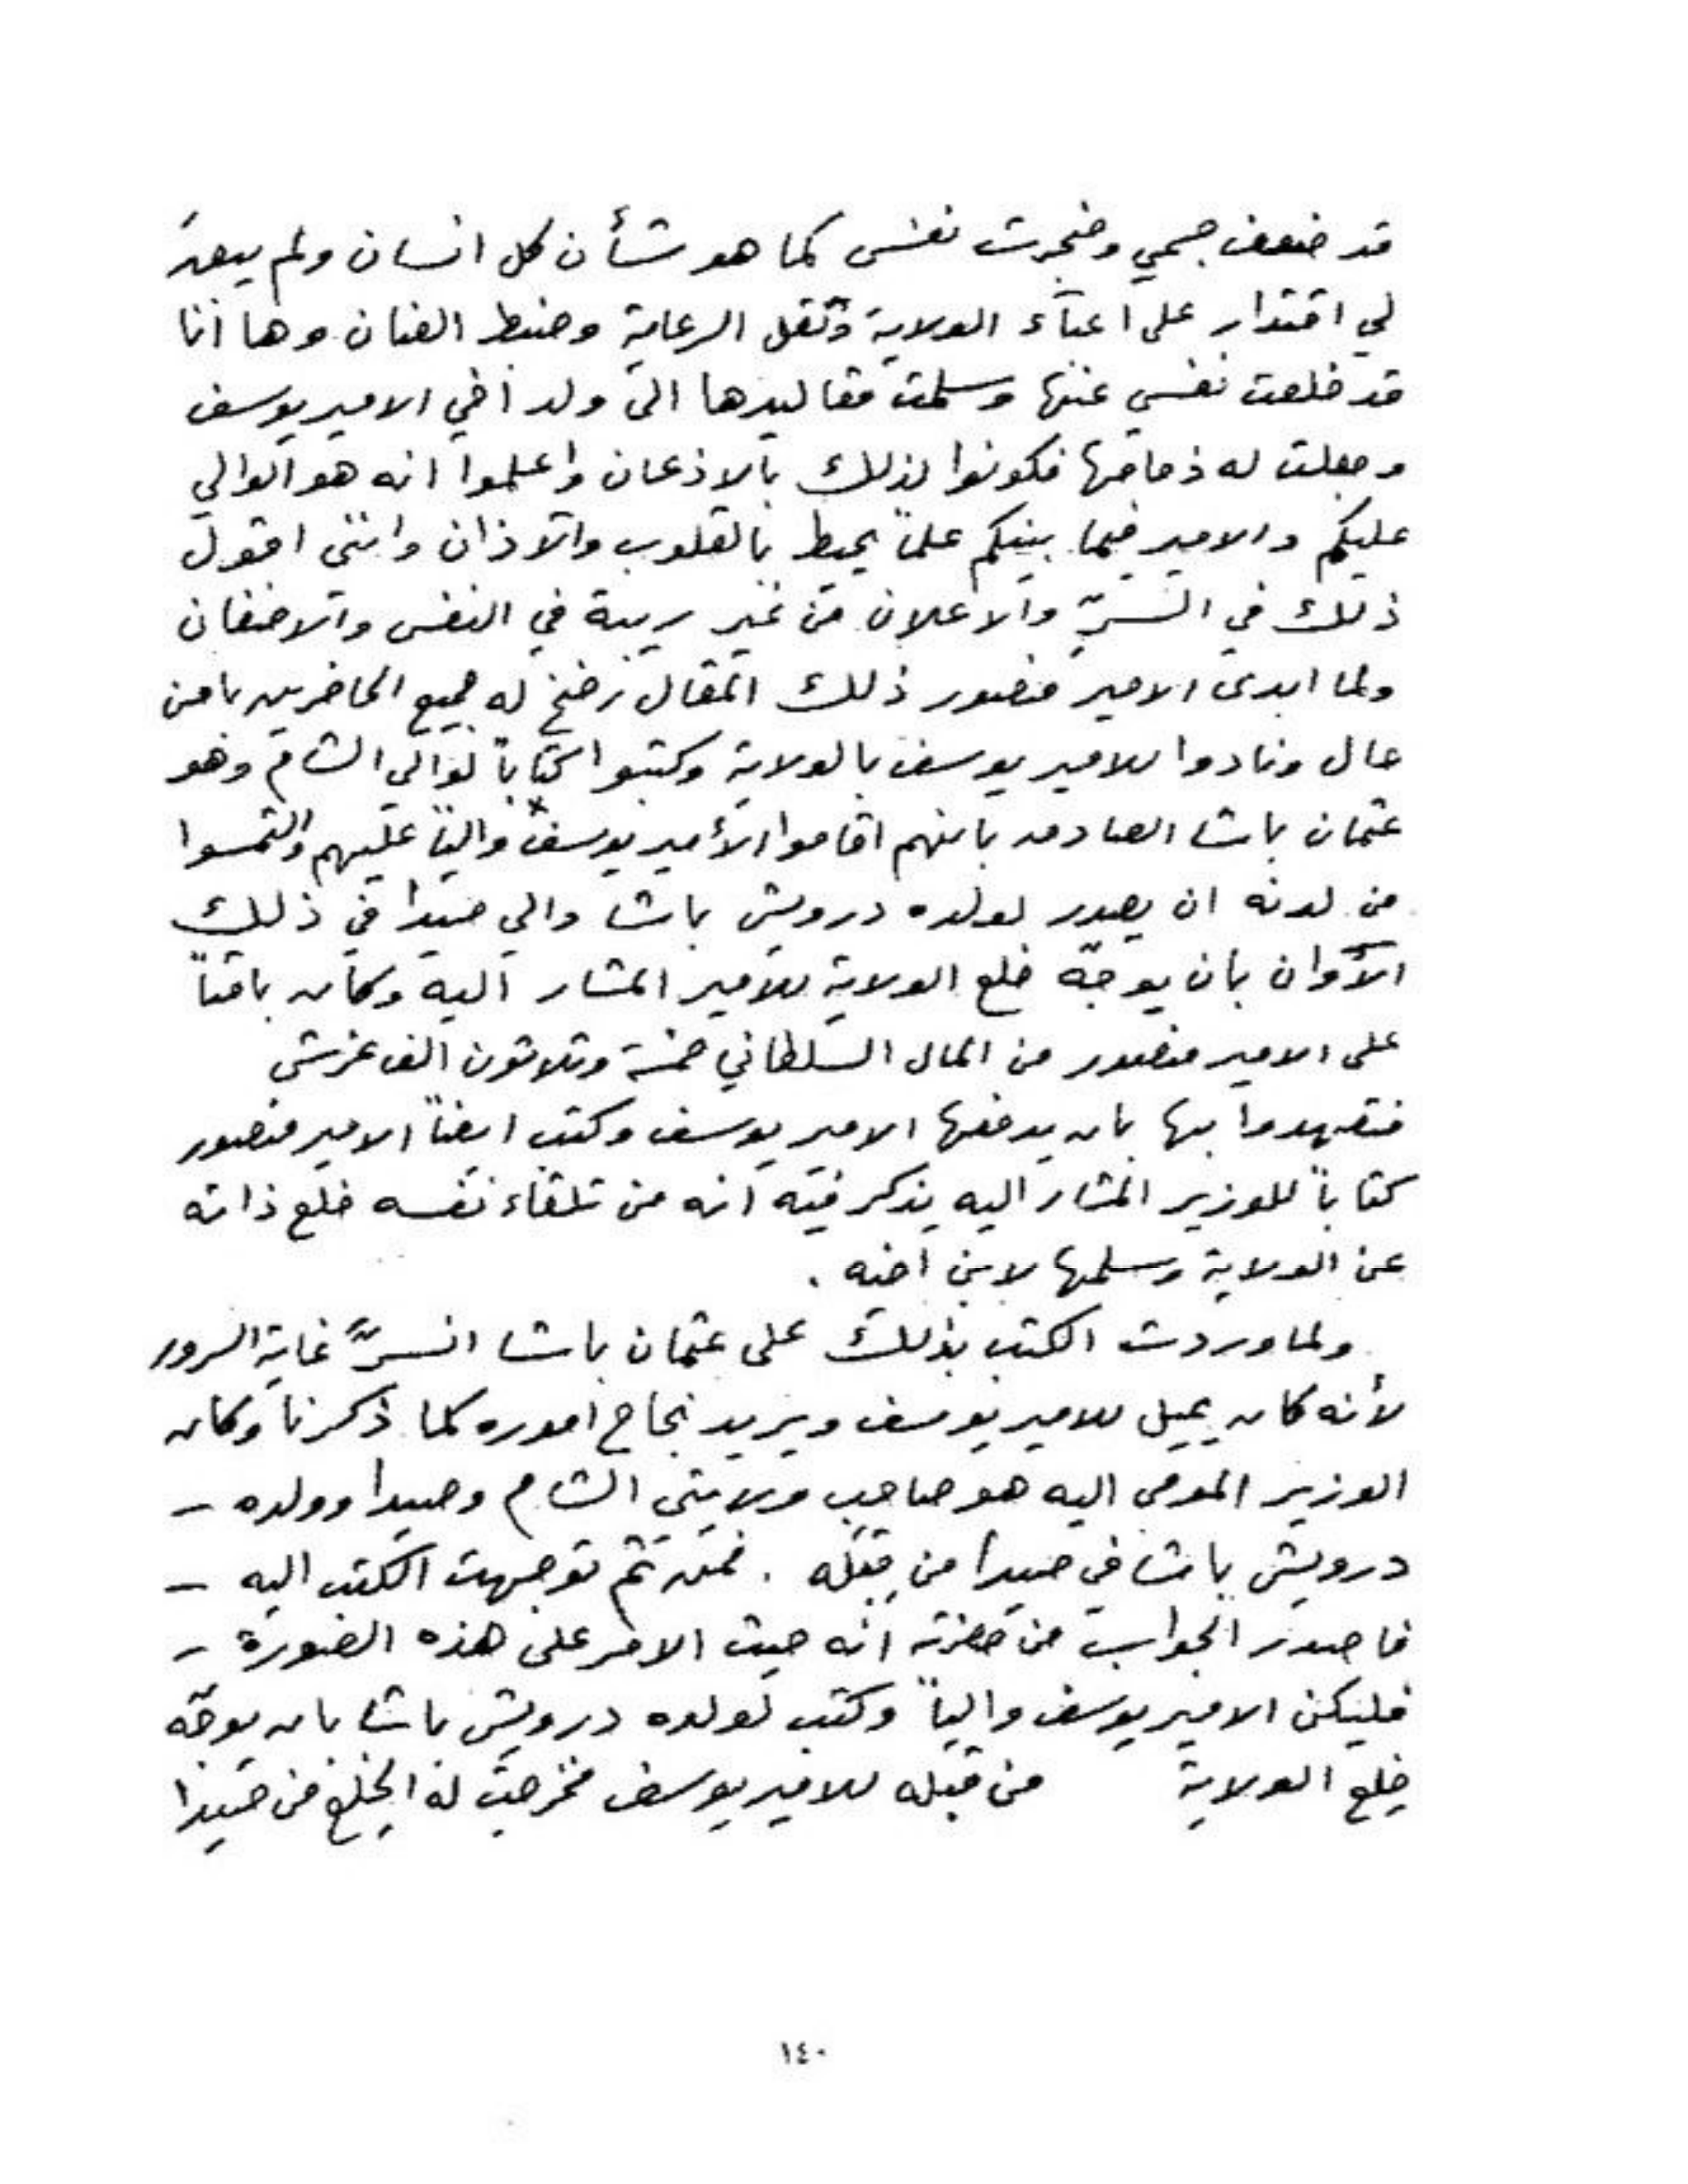 قد ضعف جسمي وضجرت نفسي كما هو شأن كل انسان ولم يعد
لي اقتدار على اعبآء الولاية وثقل الرعاية وضبط العنان وها أنا
قد خلعت نفسي عنها وسلمت مقاليدها الى ولد أخي الامير يوسف
وجعلت له ذمامها فكونوا لذلك بالاذعان واعلموا انه هو الوالي
عليكم والامير فيما بينكم علماً يحيط بالقلوب والآذان وانني اقول
ذلك في السرّ والاعلان من غير ريبة في النفس والاضغان
ولما ابدى الامير منصور ذلك المقال رضخ له جميع الحاضرين بامن
حال ونادوا للامير يوسف بالولاية وكتبوا كتاباً لوالي الشام وهو
عثمان باشا الصادق بانهم اقاموا الأمير يوسف والياً عليهم والتمسوا
من لدنه ان يصدر لولده درويش باشا والي صيدا في ذلك
الآوان بان يوجّه خلع الولاية للامير المشار اليه وكان باقياً
على الامير منصور من المال السلطاني خمسة وثلاثون الف غرش
فتعهدوا بها بان يدفعها الامير يوسف وكتب ايضاً الامير منصور
كتاباً للوزير المشار اليه يذكر فيه انه من تلقاء نفسه خلع ذاته
عن الولاية وسلمها لابن اخيه .
ولما وردت الكتب بذلك على عثمان باشا انسرَّ غاية السرور
لأنه كان يميل للامير يوسف ويريد نجاح اموره كما ذكرنا وكان
الوزير المومى اليه هو صاحب ولايتي الشام وصيدا وولده –
درويش باشا في صيدا من قِبَله . فمن ثم توجهت الكتب اليه –
فاصدر الجواب من حضرته انه حيث الامر على هذه الصورة –
فليكن الامير يوسف والياً وكتب لولده درويش باشا بان يوجّه
خلع الولاية من قبله للامير يوسف فخرجت له الخلع من صيدا
١٤٠